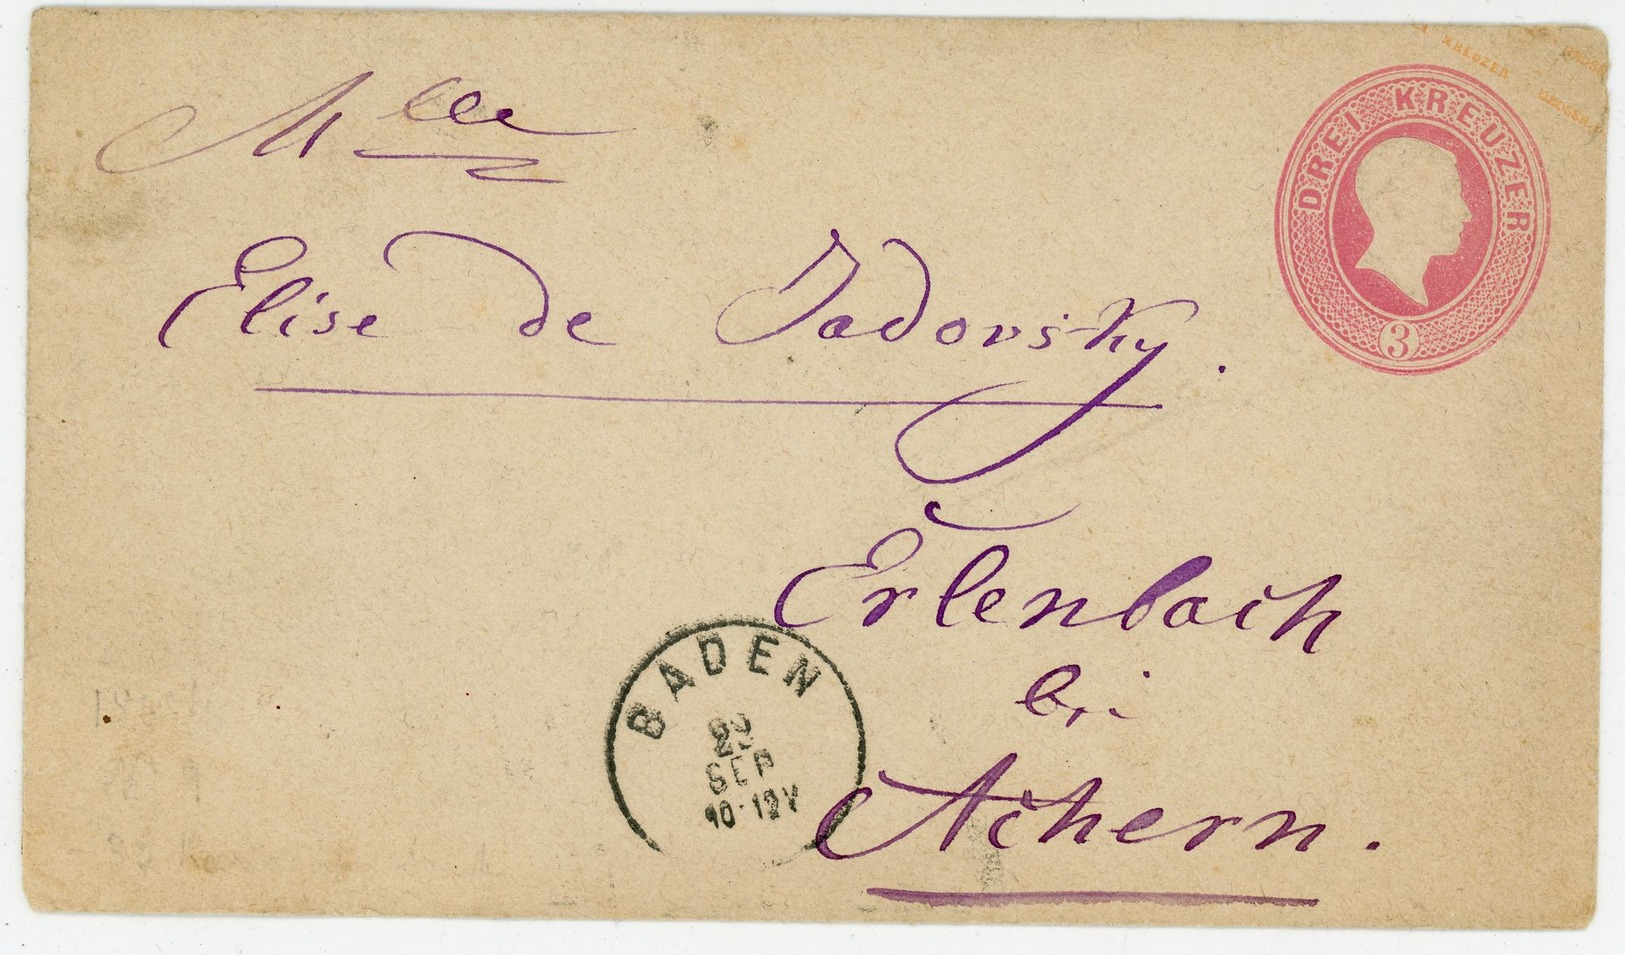 KREUZER
DREI KREUZER
3
Mlle
Elise de Jadovsky.
Erlenbach
bei
Achern.
BADEN
SEP
10-12V